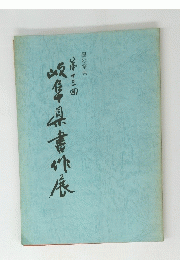 第十三回
岐阜県書作展